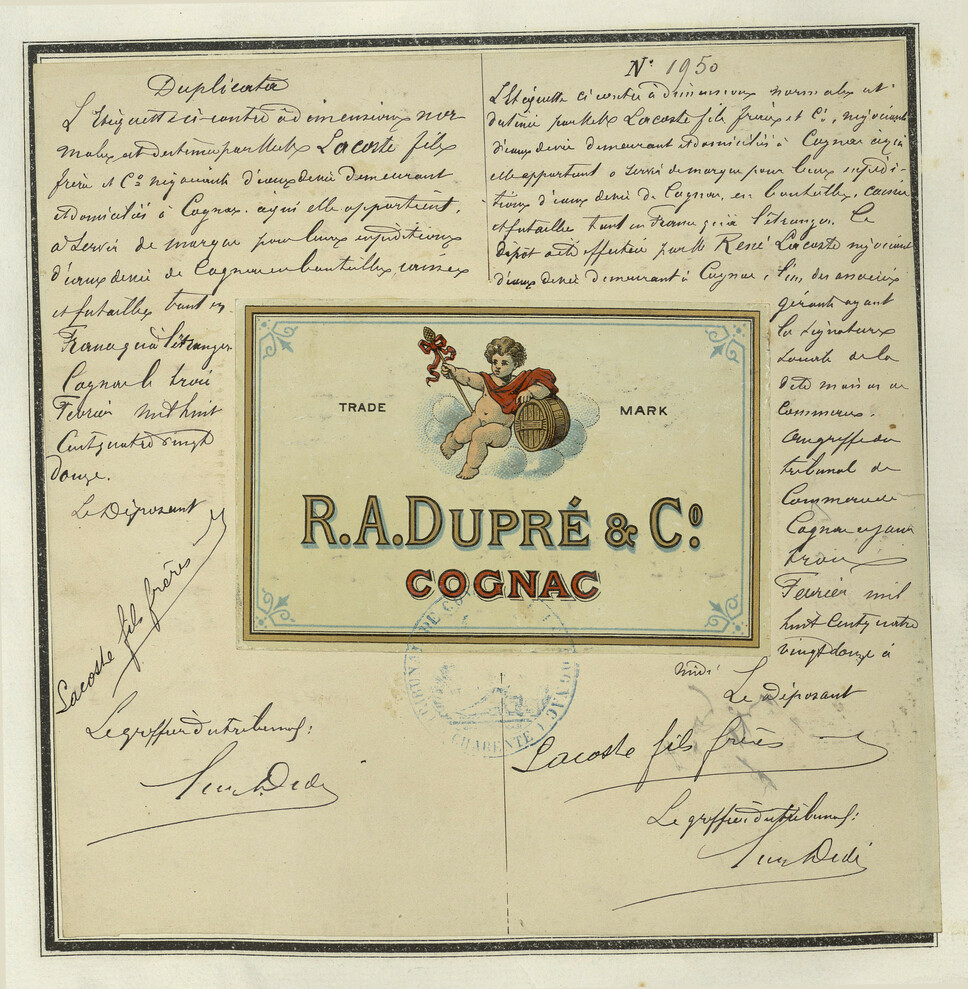 Duplicata
L'Etiquette ci-contre à dimensions nor-
males est destinée par MM Lacoste fils
frère et Cº négociants d'eaux de vie demeurant
et domiciliés à Cognac, à qui elle appartient,
à Servir de marque pour leurs expéditions
d'eaux de vie de Cognac en bouteilles, caisses
et futailles tant en
France qu'à l'étranger
Cognac le trois
Fevrier mil huit
Cent quatre vingt
douze.
Le Déposant
Lacoste fils frères
Le greffier du tribunal:
Nº 1950
L'Etiquette ci contre à dimensions normales est
destinée par MM Lacoste fils frères et Cº, négociants
d'eaux de vie demeurant et domiciliés à Cognac à qui
elle appartient à Servir de marque pour leurs expédi-
tions d'eaux de vie de Cognac, en bouteilles, caisses
et futailles tant en France qu'à l'étranger. Le
dépôt a été effectué par M René Lacoste négociant
d'eaux de vie demeurant à Cognac, l'un des associés
gérants ayant
la signature
sociale de la
dite maison de
Commerce.
au greffe du
tribunal de
Commerce de
Cognac ce jour
trois
Fevrier mil
huit Cent quatre
vingt douze à
midi
Le déposant
Lacoste fils frères
Le greffier du tribunal:
TRADE MARK
R.A.DUPRÉ & Cº
COGNAC
TRIBUNAL DE COGNAC
CHARENTE